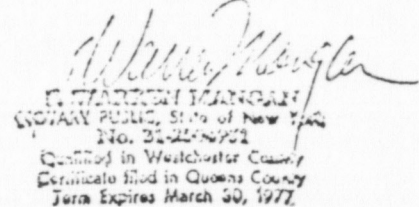 WARREN MANGAN
NOTARY PUBLIC, State of New York
No.
Qualified in Westchester County
Certificate filed in Queens County
Term Expires March 30, 1977